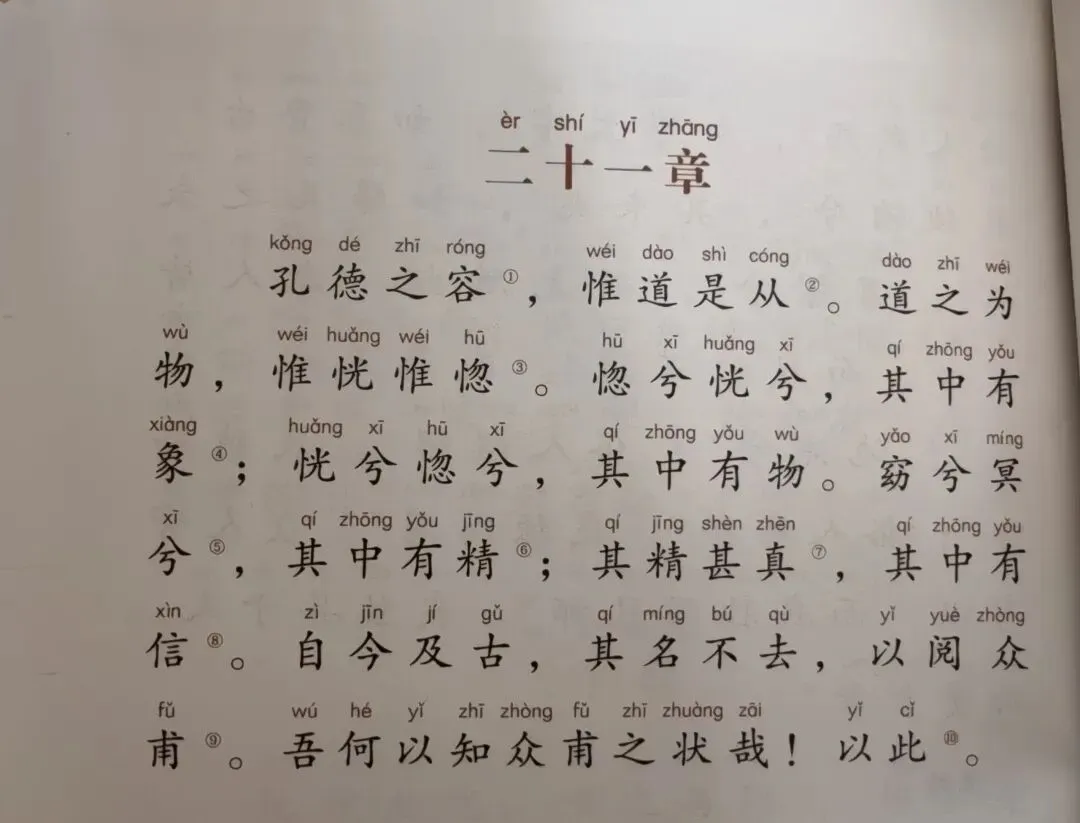 èr shí yī zhāng
二十一章
kǒng dé zhī róng wéi dào shì cóng dào zhī wéi
孔德之容①，惟道是从②。道之为
wù wéi huǎng wéi hū hū xī huǎng xī qí zhōng yǒu
物，惟恍惟惚③。惚兮恍兮，其中有
xiàng huǎng xī hū xī qí zhōng yǒu wù yǎo xī míng
象④；恍兮惚兮，其中有物。窈兮冥
xī qí zhōng yǒu jīng qí jīng shèn zhēn qí zhōng yǒu
兮⑤，其中有精⑥；其精甚真⑦，其中有
xìn zì jīn jí gǔ qí míng bú qù yǐ yuè zhòng
信⑧。自今及古，其名不去，以阅众
fǔ wú hé yǐ zhī zhòng fǔ zhī zhuàng zāi yǐ cǐ
甫⑨。吾何以知众甫之状哉！以此⑩。